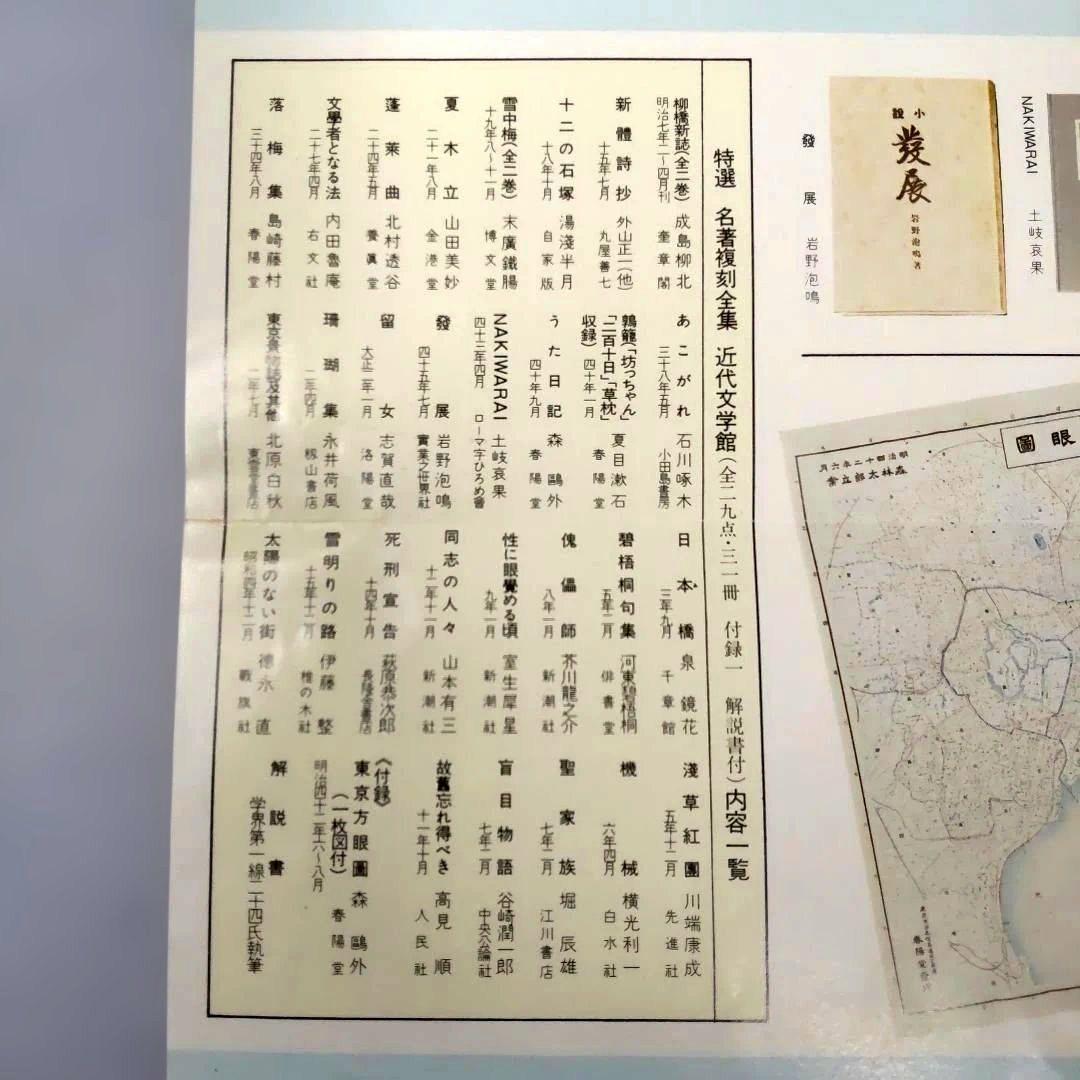 特選 名著複刻全集 近代文学館(全二九点・三一冊 付録一 解説書付)内容一覧
柳橋新誌(全二巻) 成島柳北
明治七年二〜四月刊 奎章閣
新體詩抄 外山正一(他)
十五年七月 丸屋善七
十二の石塚 湯淺半月
十八年十月 自家版
雪中梅(全二巻) 末廣鐵腸
十九年八〜十一月 博文堂
夏木立 山田美妙
二十一年八月 金港堂
蓬萊曲 北村透谷
二十四年五月 養眞堂
文學者となる法 内田魯庵
二十七年四月 右文社
落梅集 島崎藤村
三十四年八月 春陽堂
あこがれ 石川啄木
三十八年五月 小田島書房
鶉籠(「坊っちゃん」
「二百十日」「草枕」 夏目漱石
収録) 四十年一月 春陽堂
うた日記 森鷗外
四十年九月 春陽堂
NAKIWARAI 土岐哀果
四十三年四月 ローマ字ひろめ會
發展 岩野泡鳴
四十五年七月 實業之世界社
留女 志賀直哉
大正二年一月 洛陽堂
珊瑚集 永井荷風
二年四月 籾山書店
東京景物詩及其他 北原白秋
二年七月 東雲堂書店
日本橋 泉鏡花
三年九月 千章館
碧梧桐句集 河東碧梧桐
五年二月 俳書堂
傀儡師 芥川龍之介
八年一月 新潮社
性に眼覺める頃 室生犀星
九年一月 新潮社
同志の人々 山本有三
十二年十一月 新潮社
死刑宣告 萩原恭次郎
十四年十月 長隆舎書店
雪明りの路 伊藤整
十五年十二月 椎の木社
太陽のない街 德永直
昭和四年十二月 戰旗社
淺草紅團 川端康成
五年十二月 先進社
機械 横光利一
六年四月 白水社
聖家族 堀辰雄
七年二月 江川書店
盲目物語 谷崎潤一郎
七年二月 中央公論社
故舊忘れ得べき 高見順
十一年十月 人民社
《付録》
東京方眼圖 森鷗外
(一枚図付) 春陽堂
明治四十二年六〜八月
解説書
学界第一線二十四氏執筆
小説
發展
岩野泡鳴著
發展 岩野泡鳴
NAKIWARAI 土岐哀果
眼圖
明治四十二年六月
森林太郎立案
春陽堂